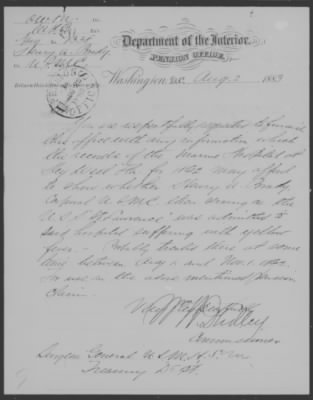 Department of the Interior,
PENSION OFFICE,
Washington, D.C., Aug. 2, 1883
You are respectfully requested to furnish
this office with any information which
the records of the Marine Hospital at
Key West Fla for 1862 may afford
to show whether Henry A. Brady
Corporal U.S.M.C. then serving on the
U.S.S. was admitted to
said hospital suffering with yellow
fever - Probably treated there at some
time between Aug 1 and Nov. 1. 1862.
For use in the above mentioned pension
claim.
Very Respectfully
Dudley
Commissioner
Surgeon General U.S.M.H.S.
Treasury Dept.